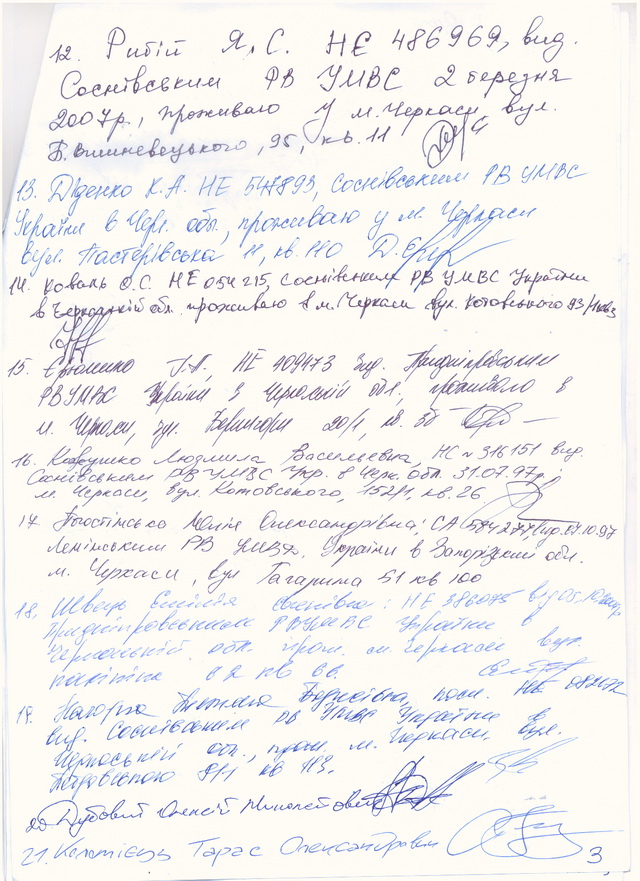 12. Рибій Я.С. НЕ 486969, вид.
Соснівським РВ УМВС 2 березня
2007р., проживаю у м.Черкаси вул.
Б.Вишневецького, 95, кв.11
13. Діденко К.А. НЕ 547893, Соснівським РВ УМВС
України в Черк. обл., проживаю у м. Черкаси
вул. Пастерівська 11, кв.110
14. Коваль О.С. НЕ 054215, Соснівським РВ УМВС України
в Черкаській обл. проживаю в м.Черкаси вул. Котовського 93/1кв3
15. НЕ 409473 вид. Придніпровським
РВУМВС України в Черкаській обл., проживаю в
м. Черкаси, вул. 20/1, кв.
16. Людмила Васильевна, НС №316151 вид.
Соснівським РВ УМВС Укр. в Черк. обл. 31.07.97р.,
м. Черкаси, вул. Котовського, 152/1, кв.26
17 Юлія Олександрівна, СА 584277, вид. 10.97
Ленінським РВ УМВС України в Запорізькій обл.
м. Черкаси, вул Гагарина 51 кв 100
18. Швець НЕ 386075
Придніпровським РВУМВС України в
Черкаській обл. прож. м. Черкаси вул.
19. Борисівна, посп. НЕ
вид. Соснівським РВ УМВС України в
Черкаській обл., прож. м. Черкаси, вул.
кв 113.
20 Дубовий Олексій Миколайович
21. Коломієць Тарас Олександрович
3